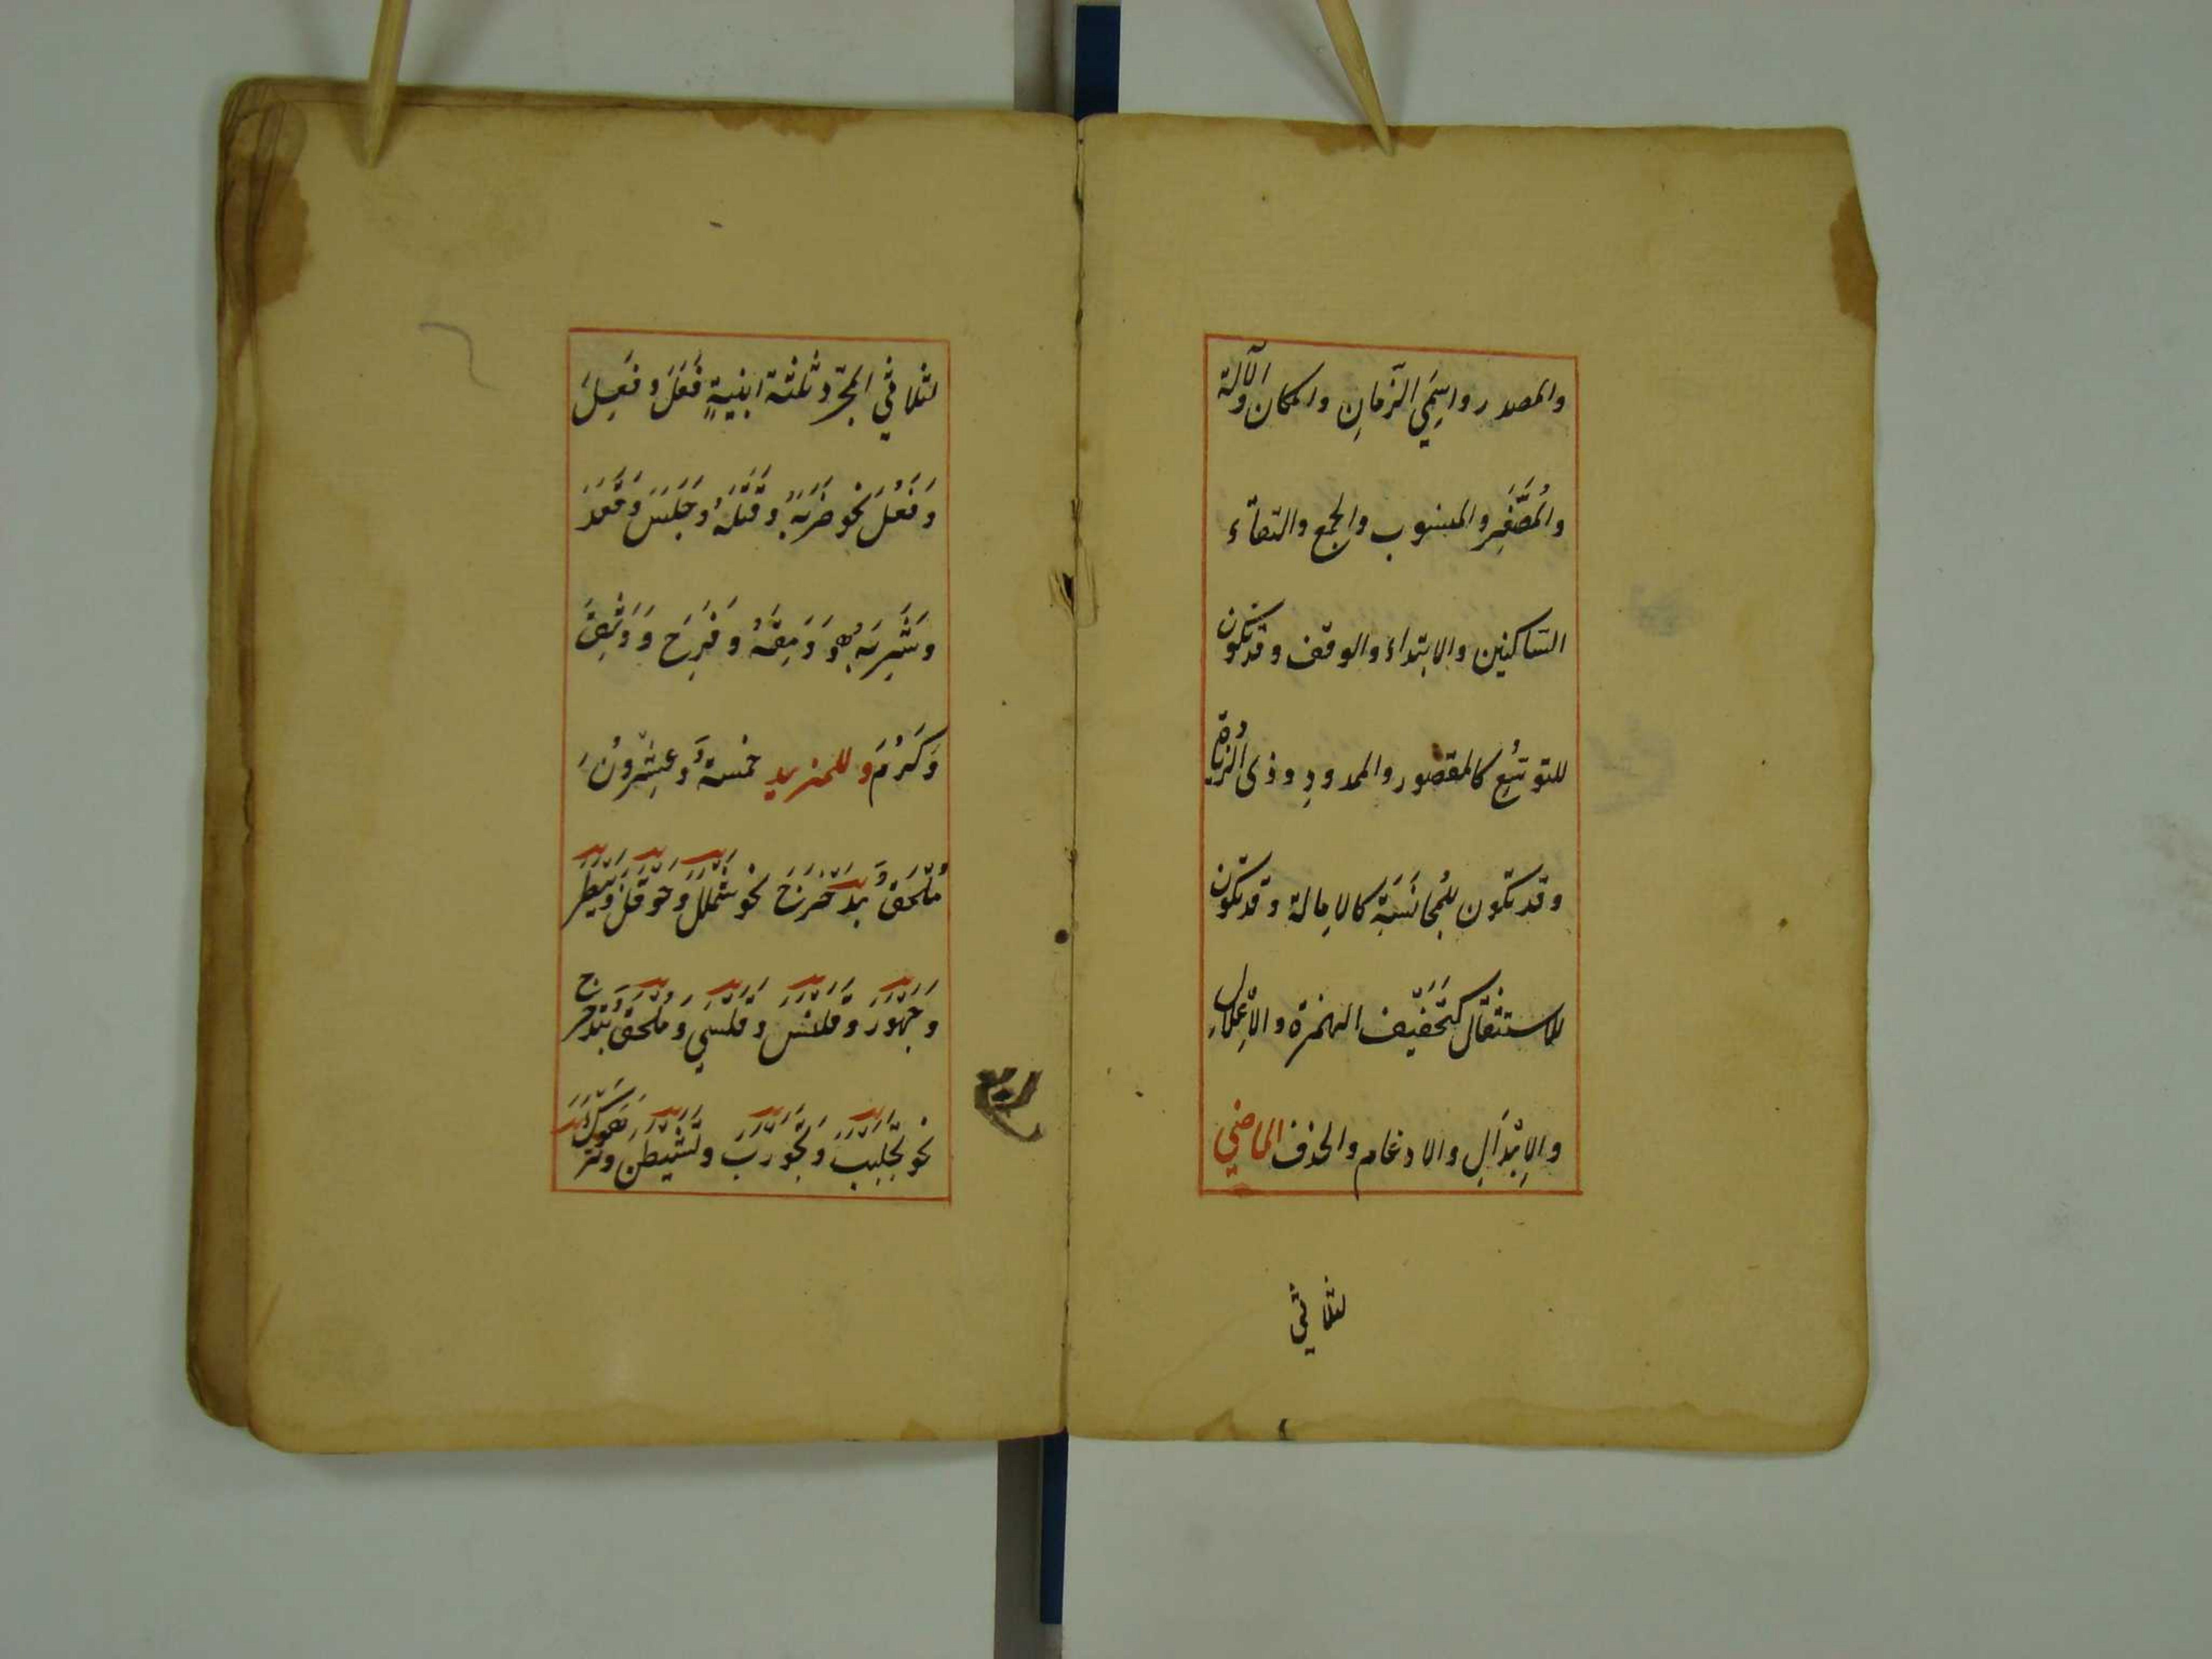 والمصدر واسِمَيِ الزّمانِ والمكان والآلة
والمُصَغَّرِ والمنسوب والجمع والتقاء
السّاكنين والابتداء والوقف وقد تكون
للتوسّعِ كالمقصور والممدودِ وذى الزّيادة
وقد تكون للمُجانَسَةِ كالاِمالة وقد تكون
للاستثقال كتَخَفّيف الهمزة والاِعْلال
والاِبْدالِ والادغام والحذف الماضي
لثلاثي
لثلاثي المجرّد ثلثة ابنيةٍ فَعَلَ وفَعِلَ
وَفَعُلَ نحو ضَرَبَهُ وقَتَلَهُ وَجَلَسَ وَقَعَدَ
وشَرِبَهُ وَوَمِقَهُ وفَرِحَ وَوَثِقَ
وَكَرُمَ وللمزيد خمسةٌ وعِشْرونُ
مُلْحَقٌ بدَحْرَجَ نحو شَمْلَلَ وَحَوْقَلَ وبَيْطَرَ
وجَهْوَرَ وقَلْنَسَ وقَلْسَي وَمُلْحَقٌ بتَدَحْرَجَ
نحو تَجَلْبَبَ وَتَجَوْرَبَ وتَشَيْطَنَ وتَرَهْوَكَ